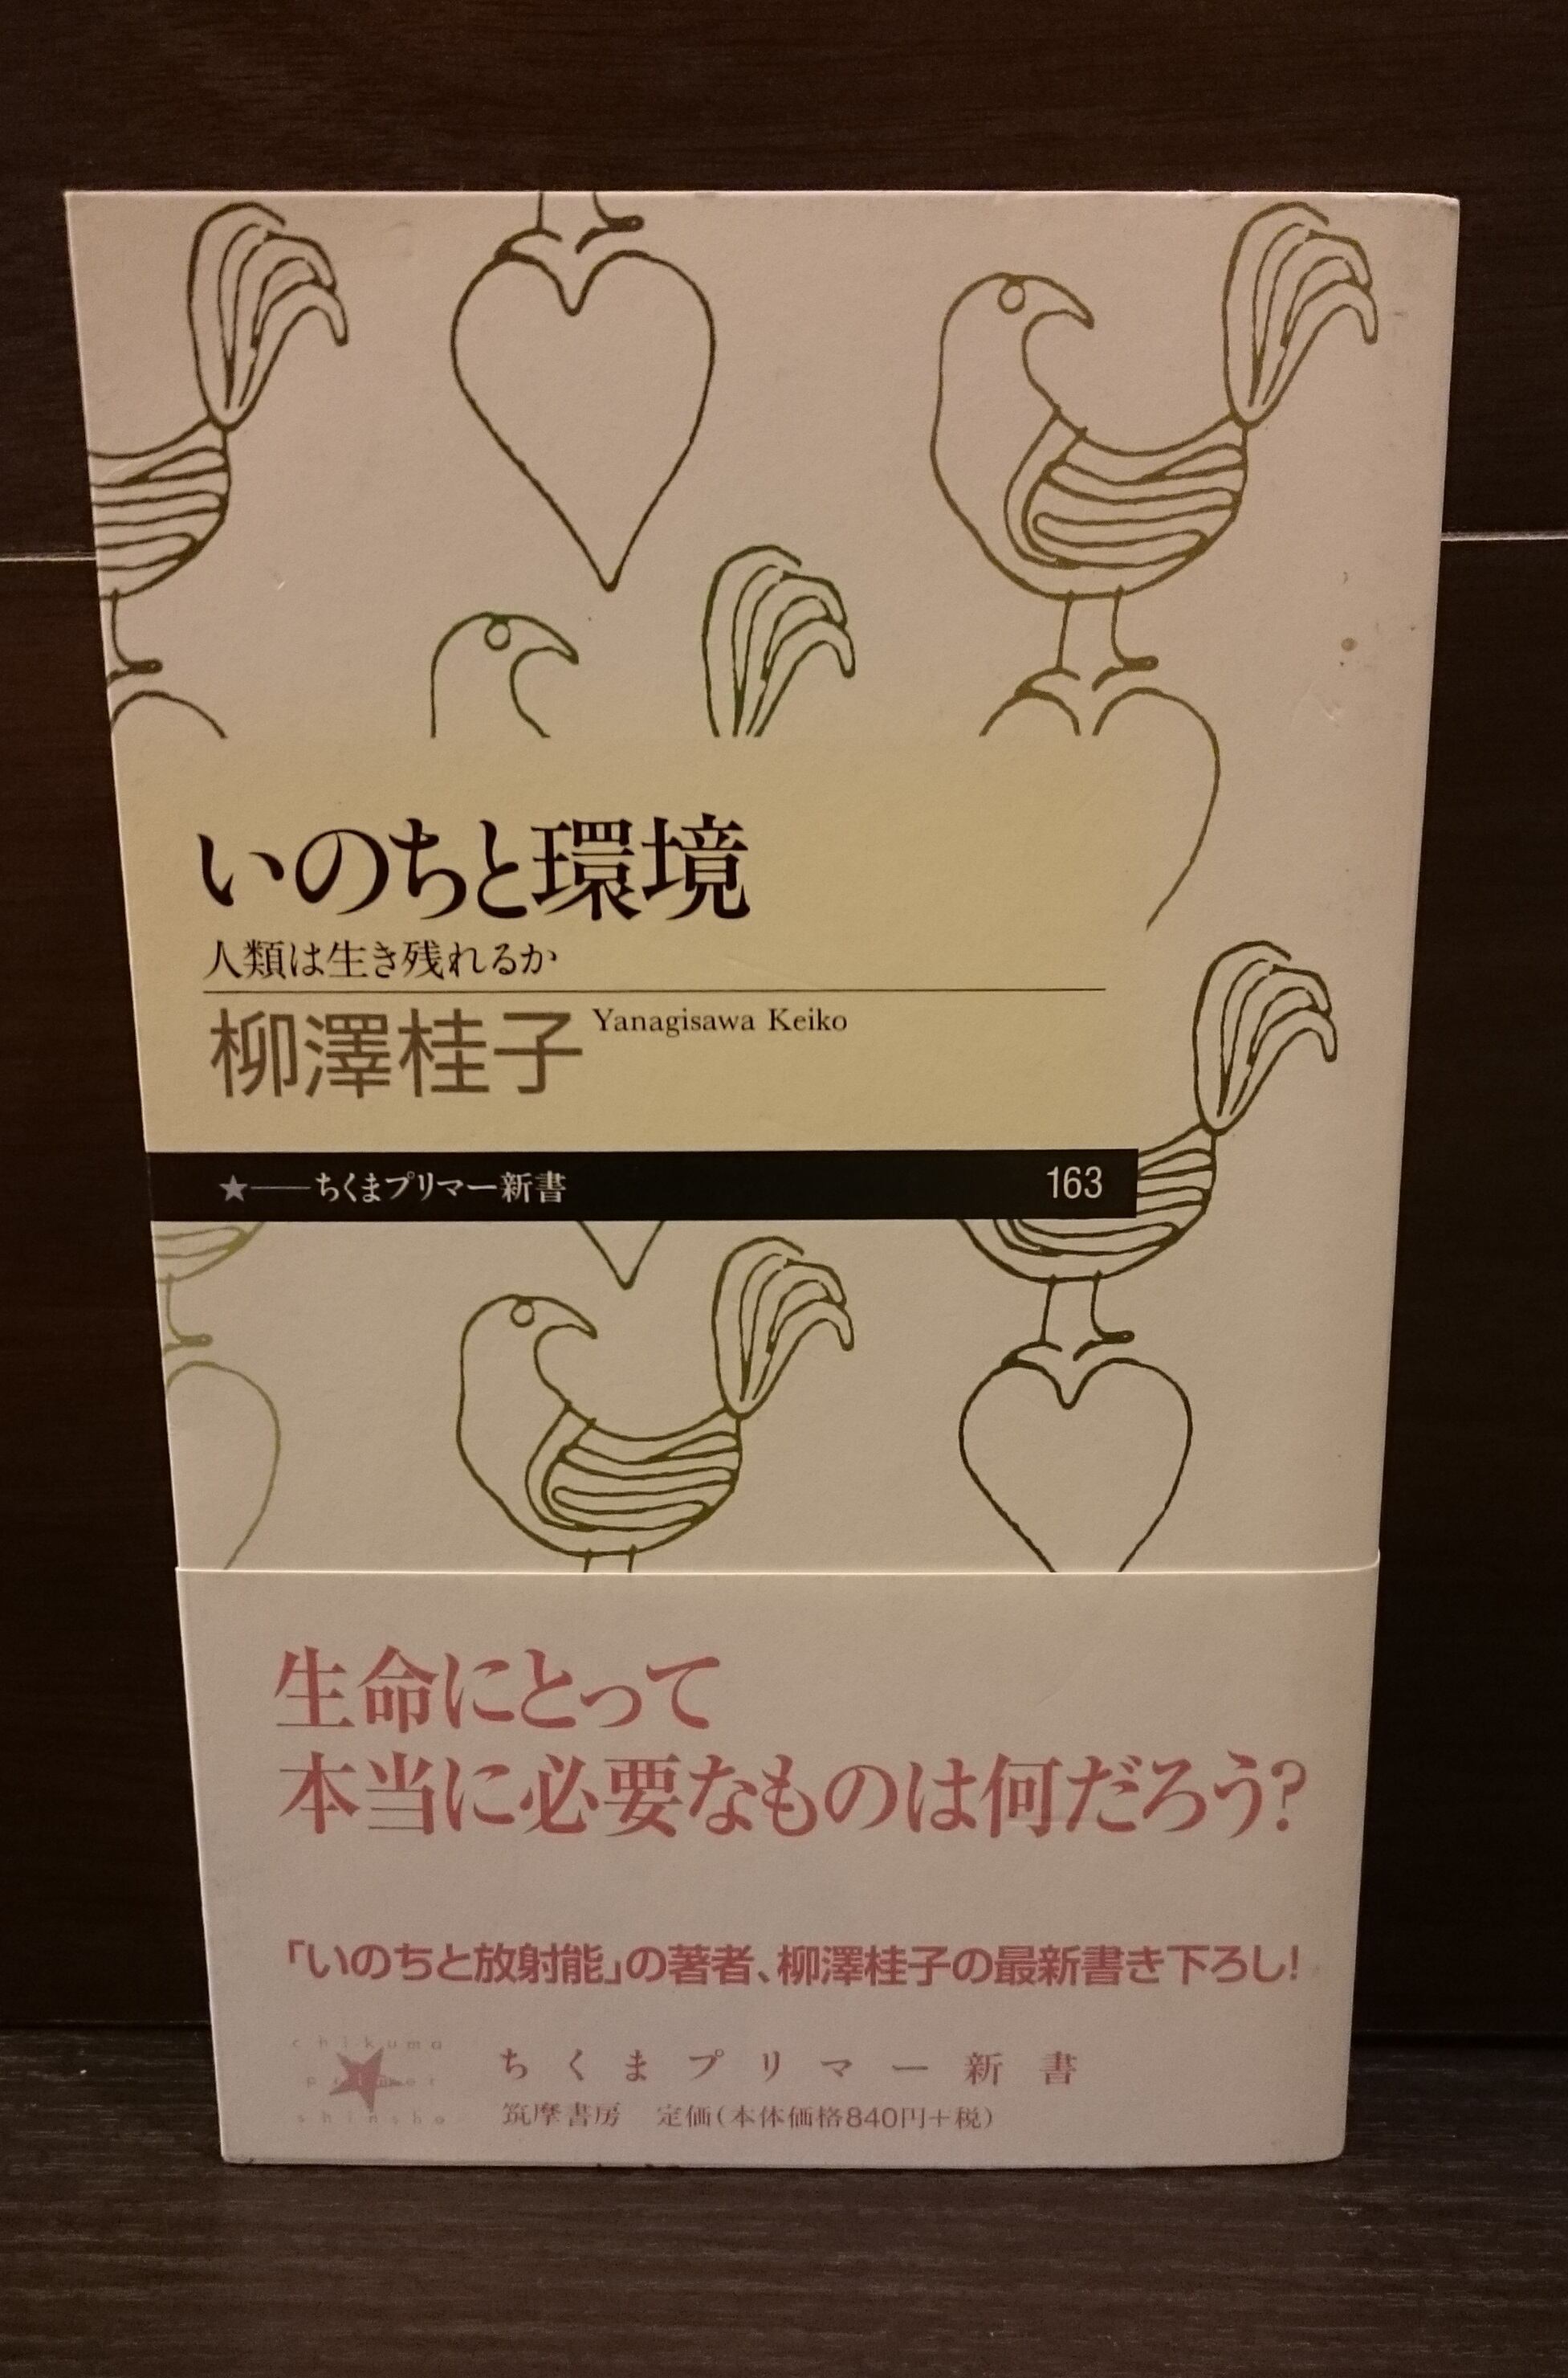 いのちと環境
人類は生き残れるか
柳澤桂子 Yanagisawa Keiko
★──ちくまプリマー新書 163
生命にとって
本当に必要なものは何だろう?
「いのちと放射能」の著者、柳澤桂子の最新書き下ろし!
chikuma
primer
shinsho
ちくまプリマー新書
筑摩書房 定価(本体価格840円+税)